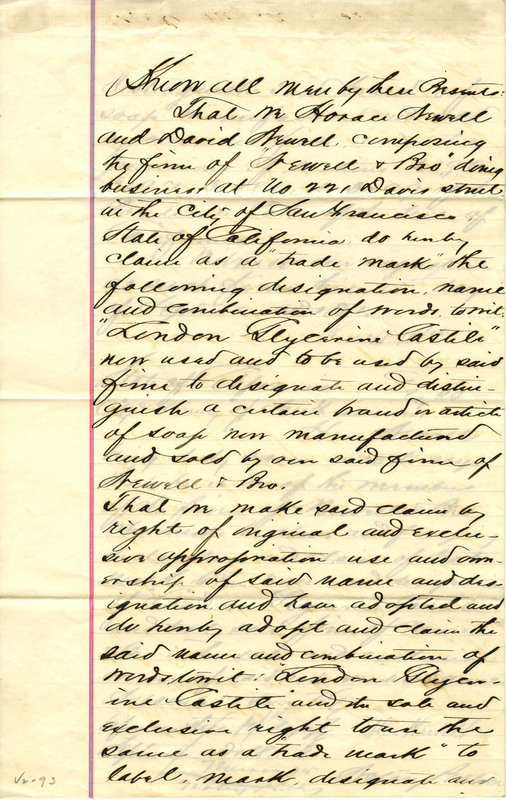 Know all men by these Presents:
That we Horace Newell
and David Newell, composing
the firm of "Newell & Bro" doing
business at No 221 Davis street
in the City of San Francisco,
State of California, do hereby
claim as a "trade mark" the
following designation, name
and combination of words, towit:
"London Glycerine Castile"
now used and to be used by said
firm to designate and distin-
guish a certain brand or article
of soap now manufactured
and sold by our said firm of
Newell & Bro.
That we make said claim by
right of original and exclu-
sive appropriation use and own-
ership of said name and des-
ignation, and have adopted and
do hereby adopt and claim the
said name and combination of
words towit: "London Glycer-
ine Castile" and the sole and
exclusive right to use the
same as a "trade mark" to
label, mark, designate and
v2-93